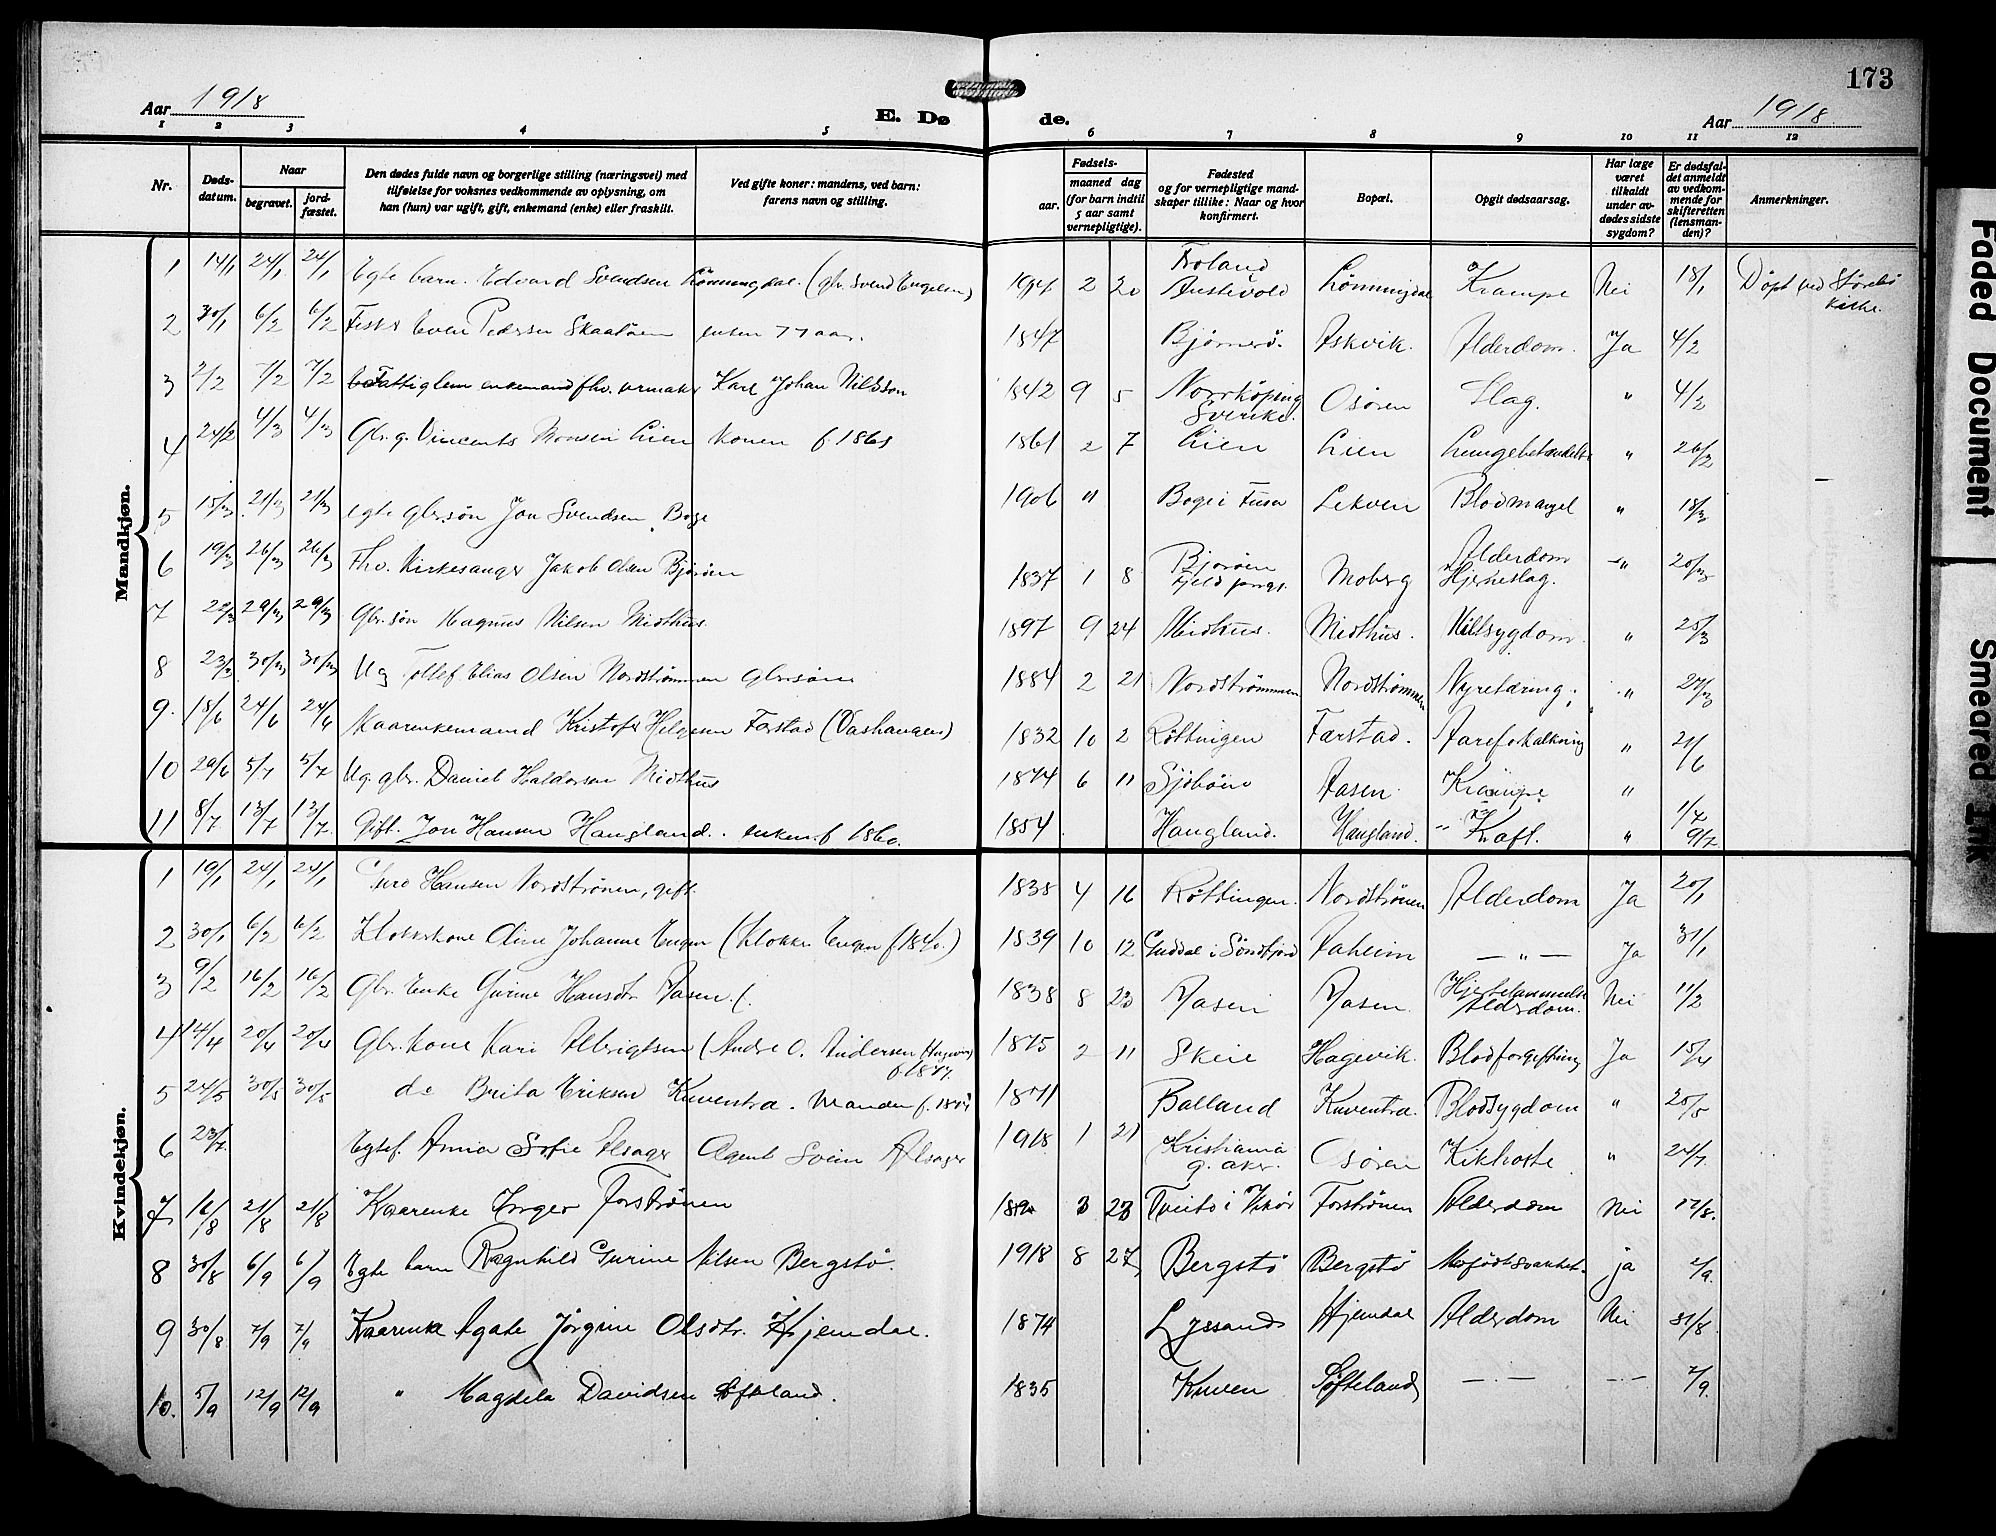 173
Aar 1918
E. Dø
de.
Aar 1918
1 2 3 4 5 6 7 8 9 10 11 12
Nr.
Døds-
datum.
Naar
begravet.
jord-
fæstet.
Den dødes fulde navn og borgerlige stilling (næringsvei) med
tilføielse for voksnes vedkommende av oplysning, om
han (hun) var ugift, gift, enkemand (enke) eller fraskilt.
Ved gifte koner: mandens, ved barn:
farens navn og stilling.
Fødsels-
aar.
maaned dag
(for barn indtil
5 aar samt
vernepligtige).
Fødested
og for vernepligtige mand-
skaper tillike: Naar og hvor
konfirmert.
Bopæl.
Opgit dødsaarsag.
Har læge
været
tilkaldt
under av-
dødes sidste
sygdom?
Er dødsfal-
det anmeldt
av vedkom-
mende for
skifteretten
(lensman-
den)?
Anmerkninger.
Mandkjøn.
1 14/1 24/1 24/1 Egte barn. Edvard Svendsen Lönningdal. (gbr. Svend Engelsen) 2 20 Troland Austevold Lönningdal Krampe Nei 18/1 Döpt ved Störebö kirke.
2 30/1 6/2 6/2 Fisker Even Pedersen Skaatöen enken 77 aar. 1847 Björnerö. Askvik. Alderdom. Ja 4/2
3 2/2 7/2 7/2 Fattiglem enkemand fhv. urmaker Karl Johan Nilsson 1842 9 5 Norrköping Sverike. Osören Slag. " 4/2
4 24/2 4/3 4/3 Gbr. g. Vincents Monsen Lien konen f. 1861 1861 2 7 Lien Lien Lungebetændelse " 26/2
5 15/3 21/3 21/3 egte gbr.sön Jon Svendsen Boge 1906 " Boge i Fusa Lekven Blodmangel " 18/3
6 19/3 26/3 26/3 Fhv. Kirkesanger Jakob Olsen Björöen 1837 1 8 Björöen Fjeld prgj. Moberg Alderdom Hjerneslag. " 20/3
7 22/3 29/3 29/3 Gbr. sön Magnus Nilsen Midthus. 1897 9 24 Midthus. Midthus. Miltsygdom. " 25/3
8 23/3 30/3 30/3 Ug Tollef Elias Olsen Nordströmmen gbr.sön 1884 2 21 Nordströmmen Nordströmmen Nyretæring; " 27/3
9. 18/6 24/6 24/6 Kaarenkemand Kristofer Helgesen Færstad (Vashaugen) 1832 10 2 Röttingen Færstad. Aareforkalkning " 21/6
10 29/6 5/7 5/7 Ug. gbr. Daniel Haldorsen Midthus 1874 6 11 Sjöböen Aasen Krampe. " 1/7
11 8/7 13/7 13/7 Gift. Jon Hansen Haugland. enken f 1860. 1854 Haugland. Haugland. Kræft. " 9/7
Kvindekjøn.
1 19/1 24/1 24/1 Hansen Nordströnen, gift. 1838 4 16 Röttingen. Nordströnen Alderdom Ja 20/1
2 30/1 6/2 6/2 Klokkerkone Oline Johanne Engen (Klokker Engen f 1840.) 1839 10 12 Guddal i Söndfjord Aaheim — " — Ja 31/1
3 9/2 16/2 16/2 Gbr. Enke Gurine Hansdtr. Aasen (. 1838 8 23 Aasen Aasen. Hjertelammelse Alderdom. Nei 11/2
4 14/4 20/4 20/4 Gbr. kone Kari Albrigtsen (Andre O. Andersen Hagevik) f. 1877. 1875 2 11 Skeie Hagevik. Blodforgiftning Ja 15/4
5 24/5 30/5 30/5 do Brita Eriksen Kuventræ. Manden f. 1871 Balland Kuventræ. Blodsygdom " 25/5
6 23/7. Egtef. Anna Sofie Alsager Agent Svein Alsager 1918 1 21 Kristiania g. aker. Osören Kikhoste " 24/7.
7 16/8 21/8 21/8 Kaarenke Inger Forströnen 3 23 Tveito i Vikör Forströnen Alderdom Nei 17/8.
8 30/8 6/9 6/9 Egte barn Ragnhild Gurine Nilsen Bergstö. 1918 8 27 Bergstö Bergstö Medfödt svakhet. ja 2/9.
9 30/8 7/9 7/9 Kaarenke Agate Jörgine Olsdtr. Hjemdal. 1874 Lyssand Hjemdal Alderdom Nei 31/8
10. 5/9 12/9 12/9 " Magdela Davidsen Söfteland. 1835 Kuven Söfteland — " — — " — 7/9.
Faded Document
Smeared Ink